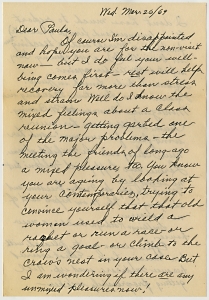 Wed. Mar 26/69
Dear Paula,
Of course I'm disappointed
and hope you are for the non-visit
now — but I do feel your well-
being comes first — rest will help
recovery far more than stress
and strain. Well do I know the
mixed feelings about a class
reunion — getting garbed one
of the major problems — the
meeting the friends of long-ago
a mixed pleasure too. You know
you are ageing by looking at
your contemporaries, trying to
convince yourself that that old
woman used to wield a
racket or run a race or
ring a goal or climb to the
crow's nest in your case. But
I am wondering if there are any
unmixed pleasures now!